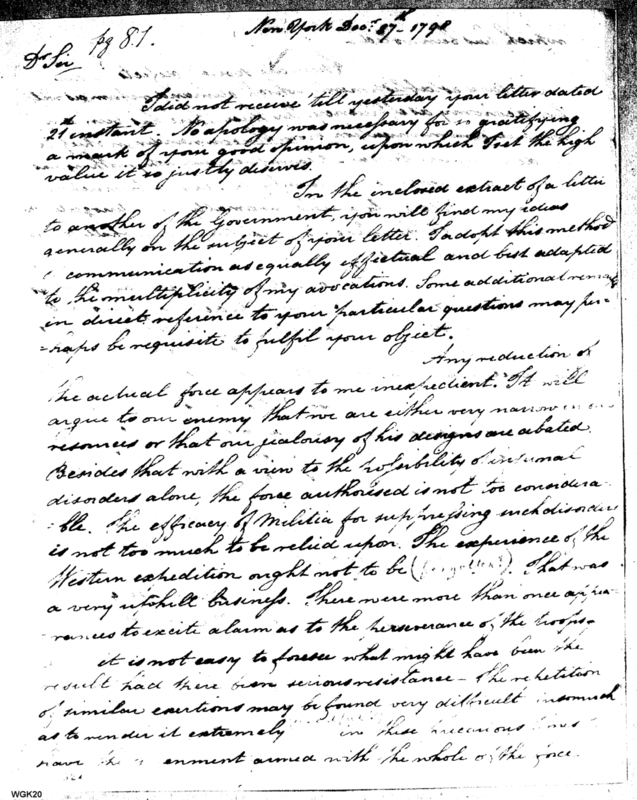 New York Decr. 27th - 1798
pg 81.
Dr Sir
I did not receive till yesterday your letter dated
21st instant. No apology was necessary for so gratifying
a mark of your good opinion, upon which I set the high
value it so justly deserves.
In the inclosed extract of a letter
to another of the Government, you will find my ideas
generally on the subject of your letter. I adopt this method
communication as equally effectual and best adapted
to the multiplicity of my avocations. Some additional remar
in direct reference to your particular questions may per-
-haps be requisite to fulfil your object.
Any reduction of
the actual force appears to me inexpedient. It will
argue to our enemy that we are either very narrow in our
resources or that our jealousy of his designs are abated.
Besides that with a view to the possibility of internal
disorders alone, the force authorised is not too considera-
-ble. The efficacy of Militia for suppressing such disorders
is not too much to be relied upon. The experience of the
Western expedition ought not to be (forgotten). That was
a very uphill business. There were more than once appea-
-rances to excite alarm as to the perseverance of the troops.
it is not easy to foresee what might have been the
result had there been serious resistance - The repetition
of similar exertions may be found very difficult insomuch
as to render it extremely in these precarious times
have the enment armed with the whole of the force
WGK20